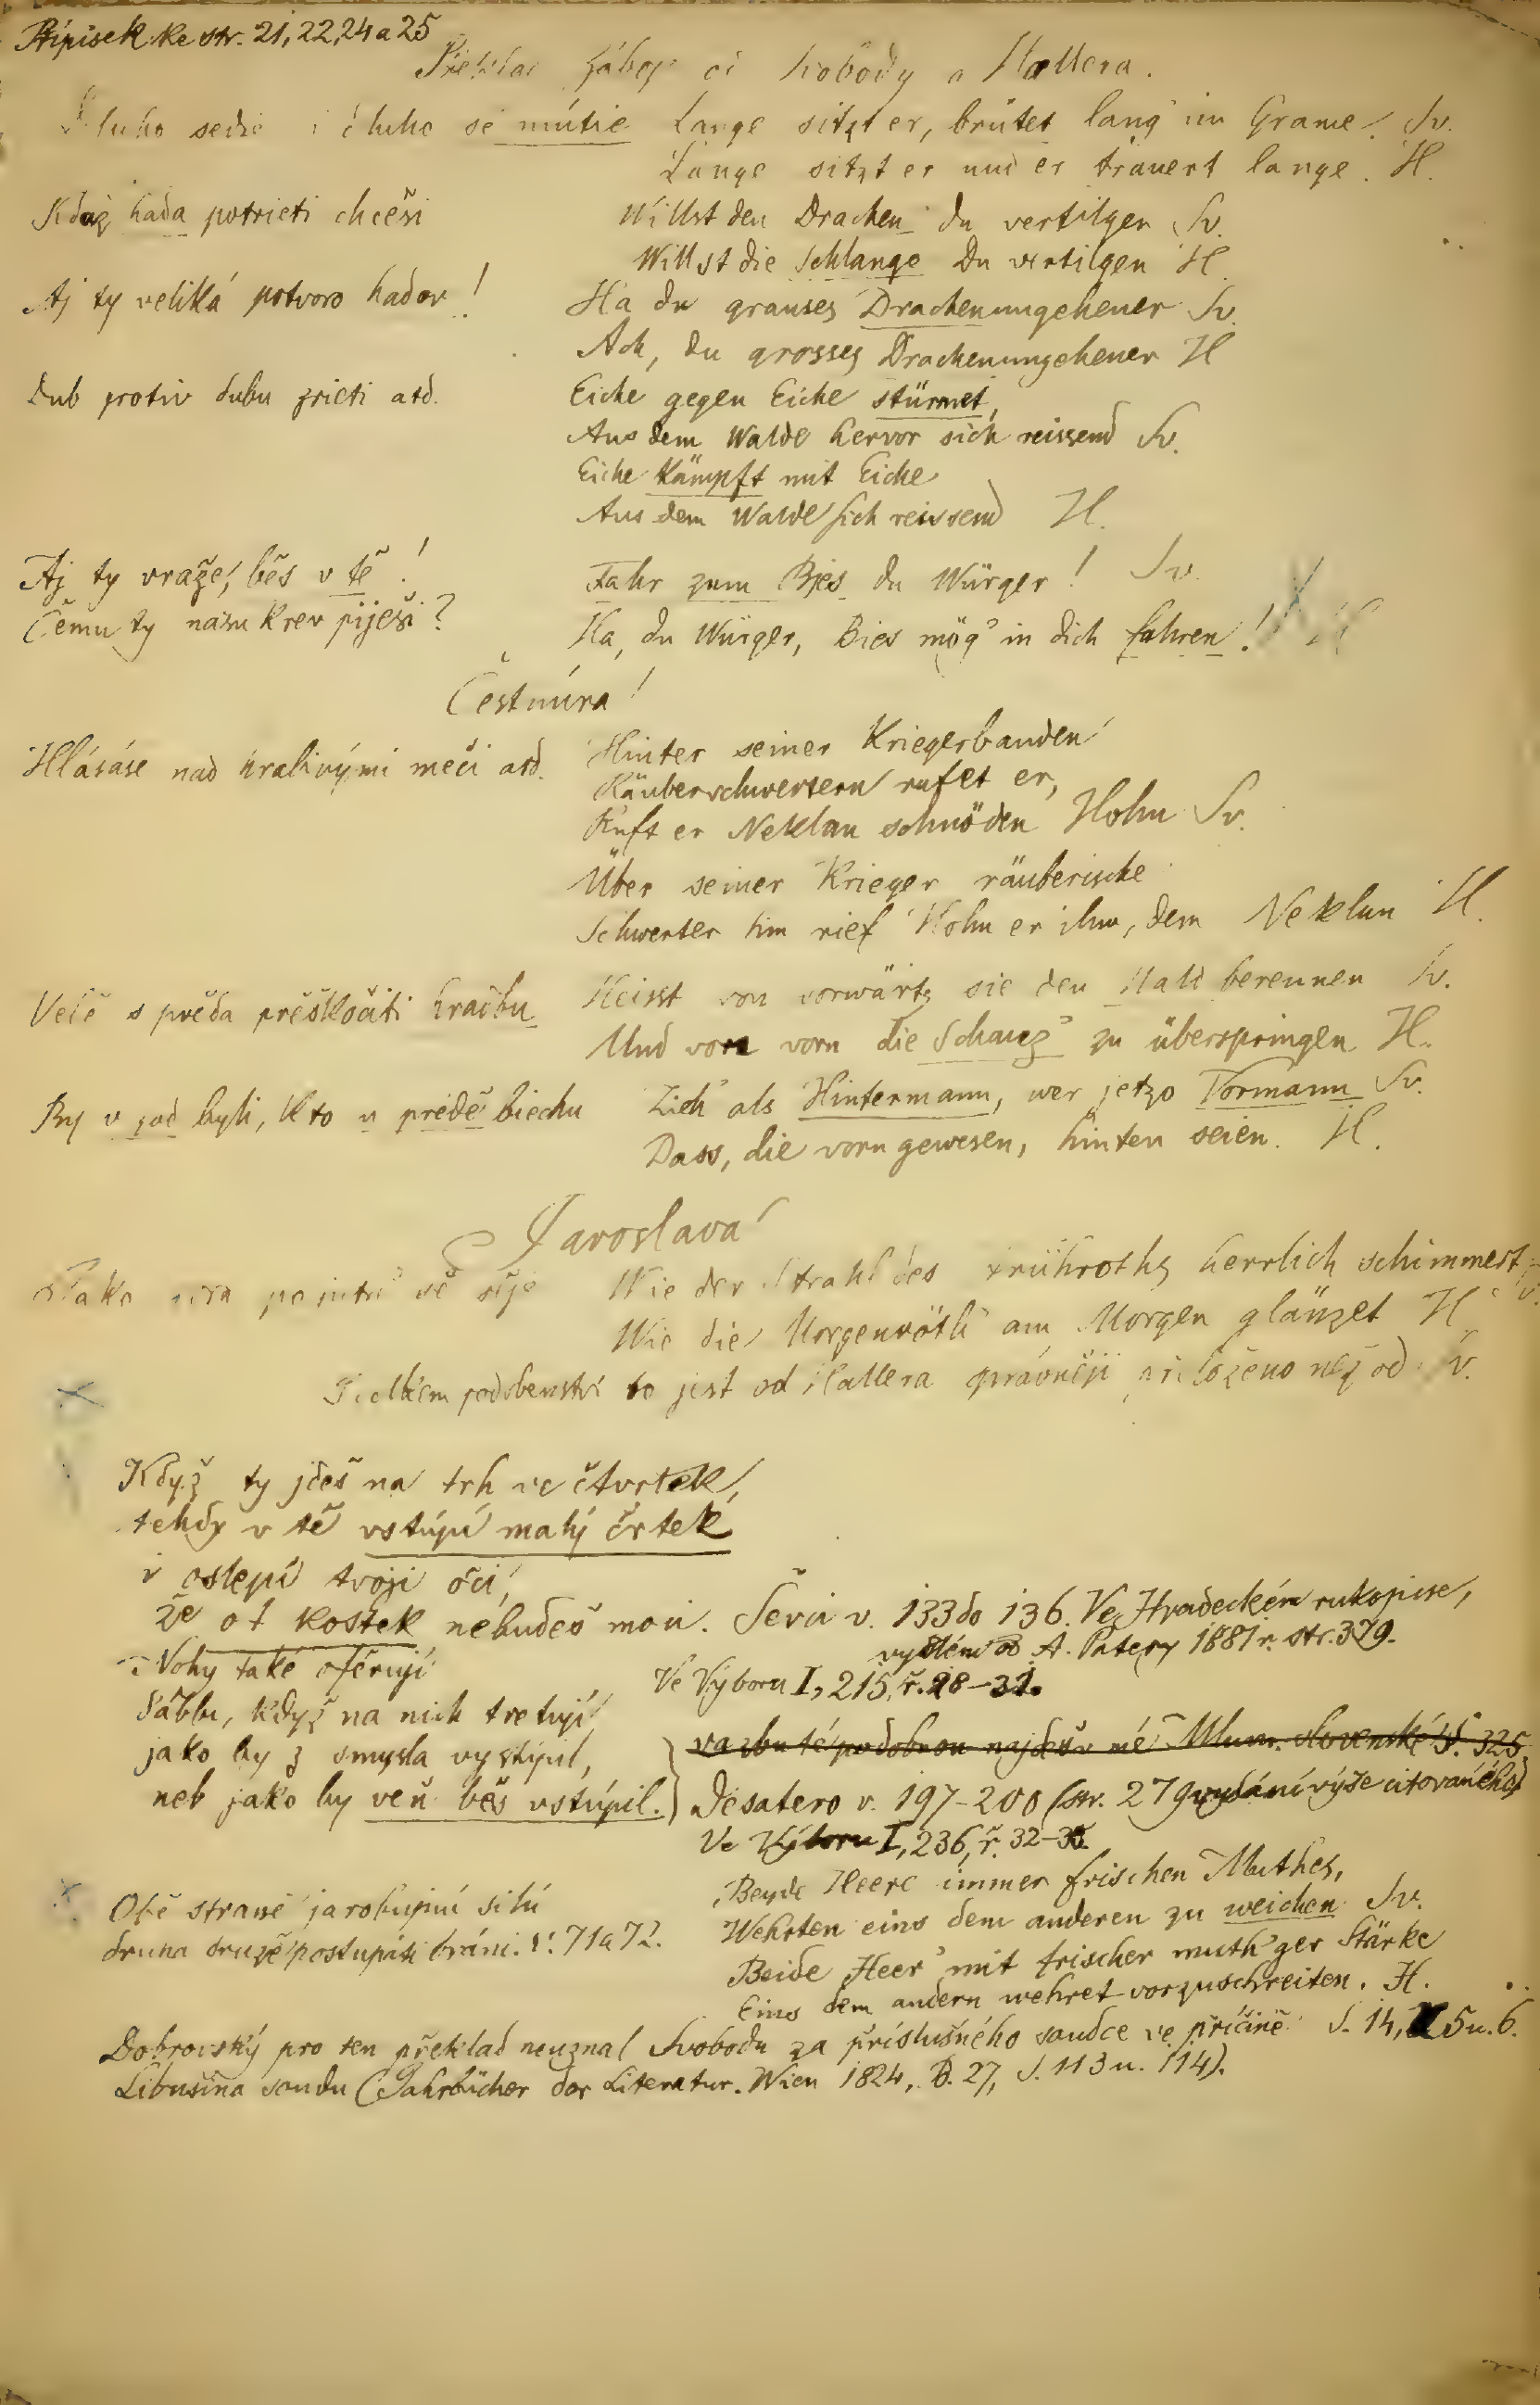 Přípisek ke str. 21, 22, 24 a 25
Překlad Záboje od Svobody a Hallera.
Dluho sedie i dluho sě mútie Lange sitzt er, brütet lang im Grame. Sv.
Lange sitzt er und er trauert lange. H.
Kdaž hada potrieti chceši Willst den Drachen du vertilgen Sv.
Willst die Schlange Du vertilgen H.
Aj ty veliká potvoro hadov! Ha du grauses Drachenungeheuer Sv.
Ach, du grosses Drachenungeheuer H
Dub protiv dubu zřieti atd. Eiche gegen Eiche stürmet,
Aus dem Walde hervor sich reissend Sv.
Eiche kämpft mit Eiche
Aus dem Walde sich reissend H.
Aj ty vraže, běs v tě! Fahr zum Bjes du Würger! Sv.
Čemu ty našu krev piješi? Ha, du Würger, Bies mög' in dich fahren! H
Čestmíra!
Hlásáše nad hrabivými meči atd. Hinter seiner Kriegerbanden
Räuberschwertern rufet er,
Ruft er Neklan schnöden Hohn Sv.
Über seiner Krieger räuberische
Schwerter hin rief Hohn er ihm, dem Neklan H.
Velé s předa přěskočiti hradbu Heisst von vorwärts sie den Wald berennen Sv.
Und von vorn die Schanz' zu überspringen H.
By v zad byli, kto u předě biechu Zieh' als Hintermann, wer jetzo Vormann Sv.
Dass, die vorn gewesen, hinten seien. H.
Jaroslava
Jako zořa po jutru sě sěje Wie der Strahl des Frühroths herrlich schimmert Sv.
Wie die Morgenröth' am Morgen glänzet H
podobenství to jest od Hallera správněji přeloženo než od Sv.
Když ty jdeš na trh ve čtvrtek,
tehdy v tě vstúpí malý črtek
i oslepí tvoji oči,
že ot kostek nebudeš moci. Ševci v. 133 do 136. Ve Hradeckém rukopise,
vydaném od A. Patery 1881 r. str. 379.
Nohy také oférují Ve Výboru I, 215, ř. 28–31.
ďáblu, když na nich tretují,
jako by z smysla vystúpil, vazbu té podobnou najdeš v mé Mluv. slovenské S. 325
neb jako by veň běs vstúpil. Desatero v. 197–200 (str. 279 vydání výše citovaného)
Ve Výboru I, 236, ř. 32–35.
Beyde Heere immer frischen Muthes,
Obě straně jarobujnú silú Wehrten eins dem anderen zu weichen Sv.
druha druzě postúpati bráni. v. 71 a 72. Beide Heer' mit frischer muth'ger Stärke
Eins dem andern wehret vorzuschreiten. H.
Dobrovský pro ten překlad neuznal Svobodu za příslušného soudce ve příčině S. 14, 5 u. 6.
Libušina soudu (Jahrbücher der Literatur. Wien 1824, B. 27, S. 113 u. 114).